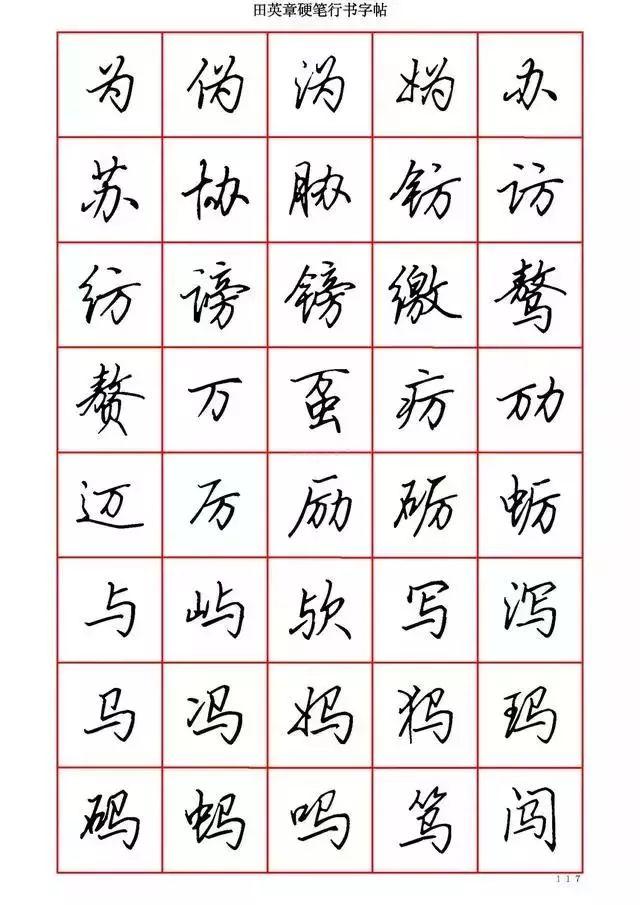 田英章硬笔行书字帖
为 伪 沩 妫 办
苏 协 胁 钫 访
纺 谤 镑 缴 骜
赘 万 虿 疠 劢
迈 厉 励 砺 蛎
与 屿 欤 写 泻
马 冯 妈 犸 玛
码 蚂 吗 笃 闯
117